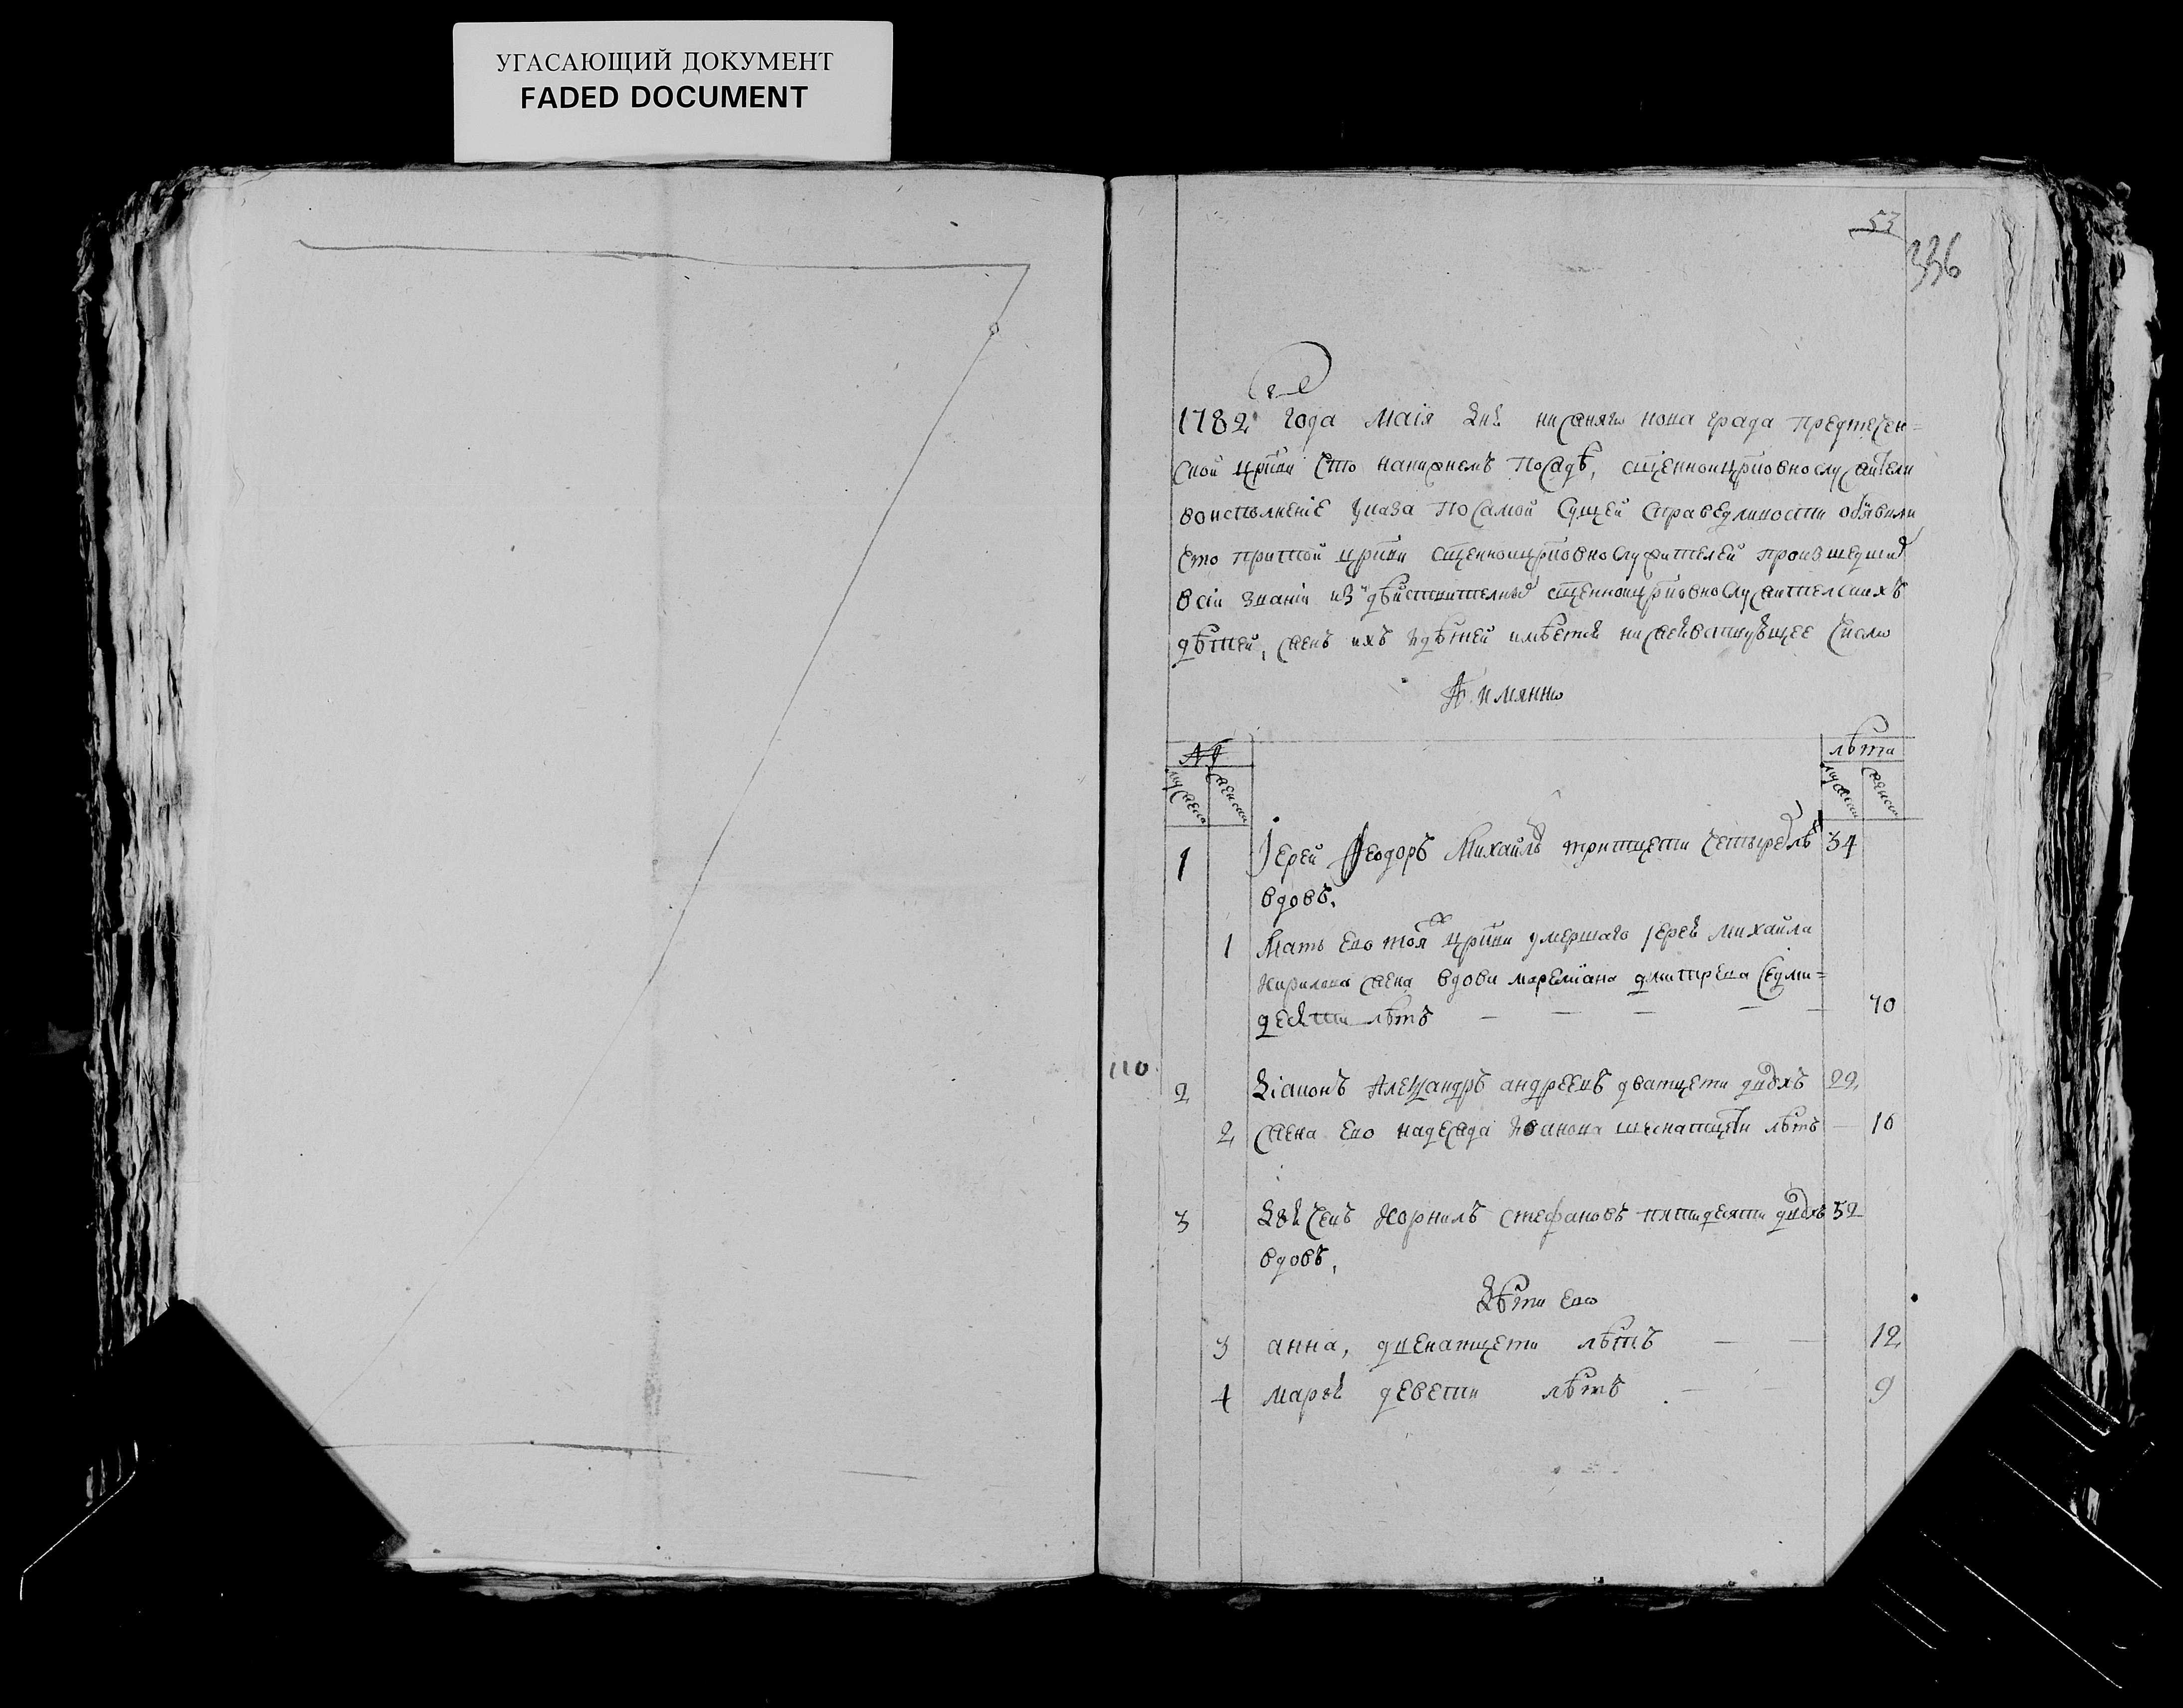 УГАСАЮЩИЙ ДОКУМЕНТ
FADED DOCUMENT
53
336
1782 года Маія дня нижняго нова града Предтечен=
ской цркви что нанижнемъ посадѣ, сщенноцрковнослужители
воисполненіе указа по самой сущей справедливости объявили
что притой цркви сщенноцрковнослужителей произшедших
в сіи званіи из действителных сщенноцрковнослужителских
дѣтей, женъ ихъ идѣтей имѣется нижеявствующее число
А имянно
№
мужеск женски
лѣта
мужски женски
1 Іерей Феодоръ Михаилъ тритцети четырех лѣт 34
вдовъ,
1 Мать ево тоя ж цркви умершаго іерея Михаила
Кирилова жена вдова маремiана дмитрева седми=
десяти лѣтъ — — — — 70
110
2 Діаконъ Александръ андреевъ дватцети двухъ 22
2 жена ево надежда Иванова шеснатцети лѣтъ — 16
3 Дьячекъ Корнилъ стефановъ пятидесяти двухъ 52
вдовъ,
Дѣти ево
3 анна, двенатцети лѣтъ — — 12
4 марья девети лѣтъ — 9